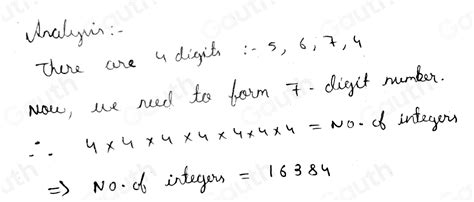 Analysis:-
There are 4 digits :- 5, 6, 7, 4
Now, we need to form 7-digit number.
∴ 4 x 4 x 4 x 4 x 4 x 4 x 4 = No. of integers
=> No. of integers = 16384